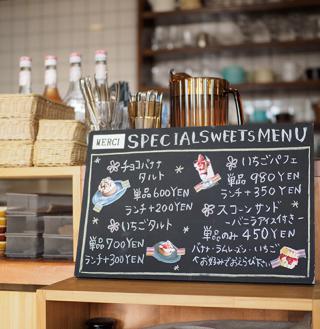 MERCI SPECIAL SWEETS MENU
チョコバナナ
タルト
単品 600YEN
ランチ+200YEN
いちごタルト
単品700YEN
ランチ+300YEN
いちごパフェ
単品 980YEN
ランチ+350YEN
スコーンサンド
-バニラアイス付き-
単品のみ 450YEN
バナナ・ラムレーズン・いちご
お好みでおえらび下さい